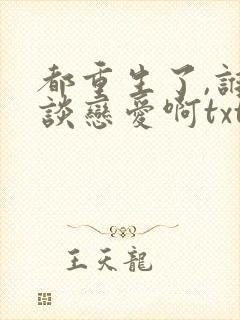 都重生了,誰
談戀愛啊txt
王天龍